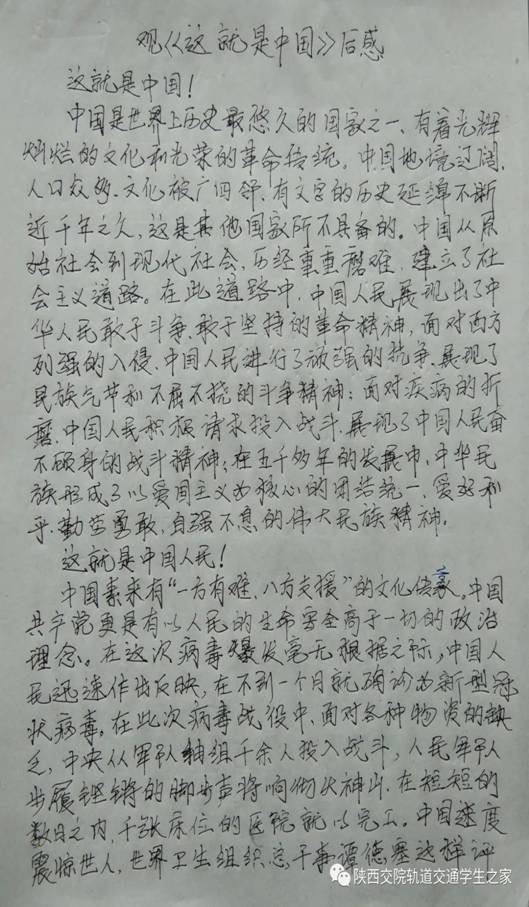 观《这就是中国》后感
这就是中国！
中国是世界上历史最悠久的国家之一、有着光辉
灿烂的文化和光荣的革命传统。中国地境辽阔、
人口众多、文化被广四邻，有文字的历史延绵不断
近千年之久，这是其他国家所不具备的。中国从原
始社会到现代社会，历经重重磨难，建立了社
会主义道路。在此道路中，中国人民展现出了中
华人民敢于斗争、敢于坚持的革命精神，面对西方
列强的入侵、中国人民进行了顽强的抗争、展现了
民族气节和不屈不挠的斗争精神；面对疾病的折
磨、中国人民积极请求投入战斗、展现了中国人民奋
不顾身的战斗精神；在五千多年的发展中、中华民
族形成了以爱国主义为核心的团结统一、爱好和
平、勤劳勇敢、自强不息的伟大民族精神。
这就是中国人民！
中国素来有“一方有难、八方支援”的文化传承，中国
共产党更是有以人民的生命安全高于一切的政治
理念。在这次病毒爆发毫无根据之际，中国人
民迅速作出反映，在不到一个月就确诊为新型冠
状病毒。在此次病毒战役中，面对各种物资的缺
乏，中央从军队抽组千余人投入战斗，人民军队
步履铿锵的脚步声将响彻火神山，在短短的
数日之内，千张床位的医院就以完工。中国速度
震惊世人，世界卫生组织总干事谭德塞这样评
陕西交院轨道交通学生之家